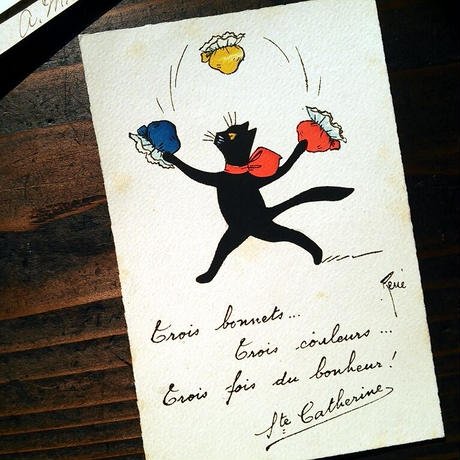 A. M
René
Trois bonnets...
Trois couleurs...
Trois fois du bonheur!
Ste Catherine